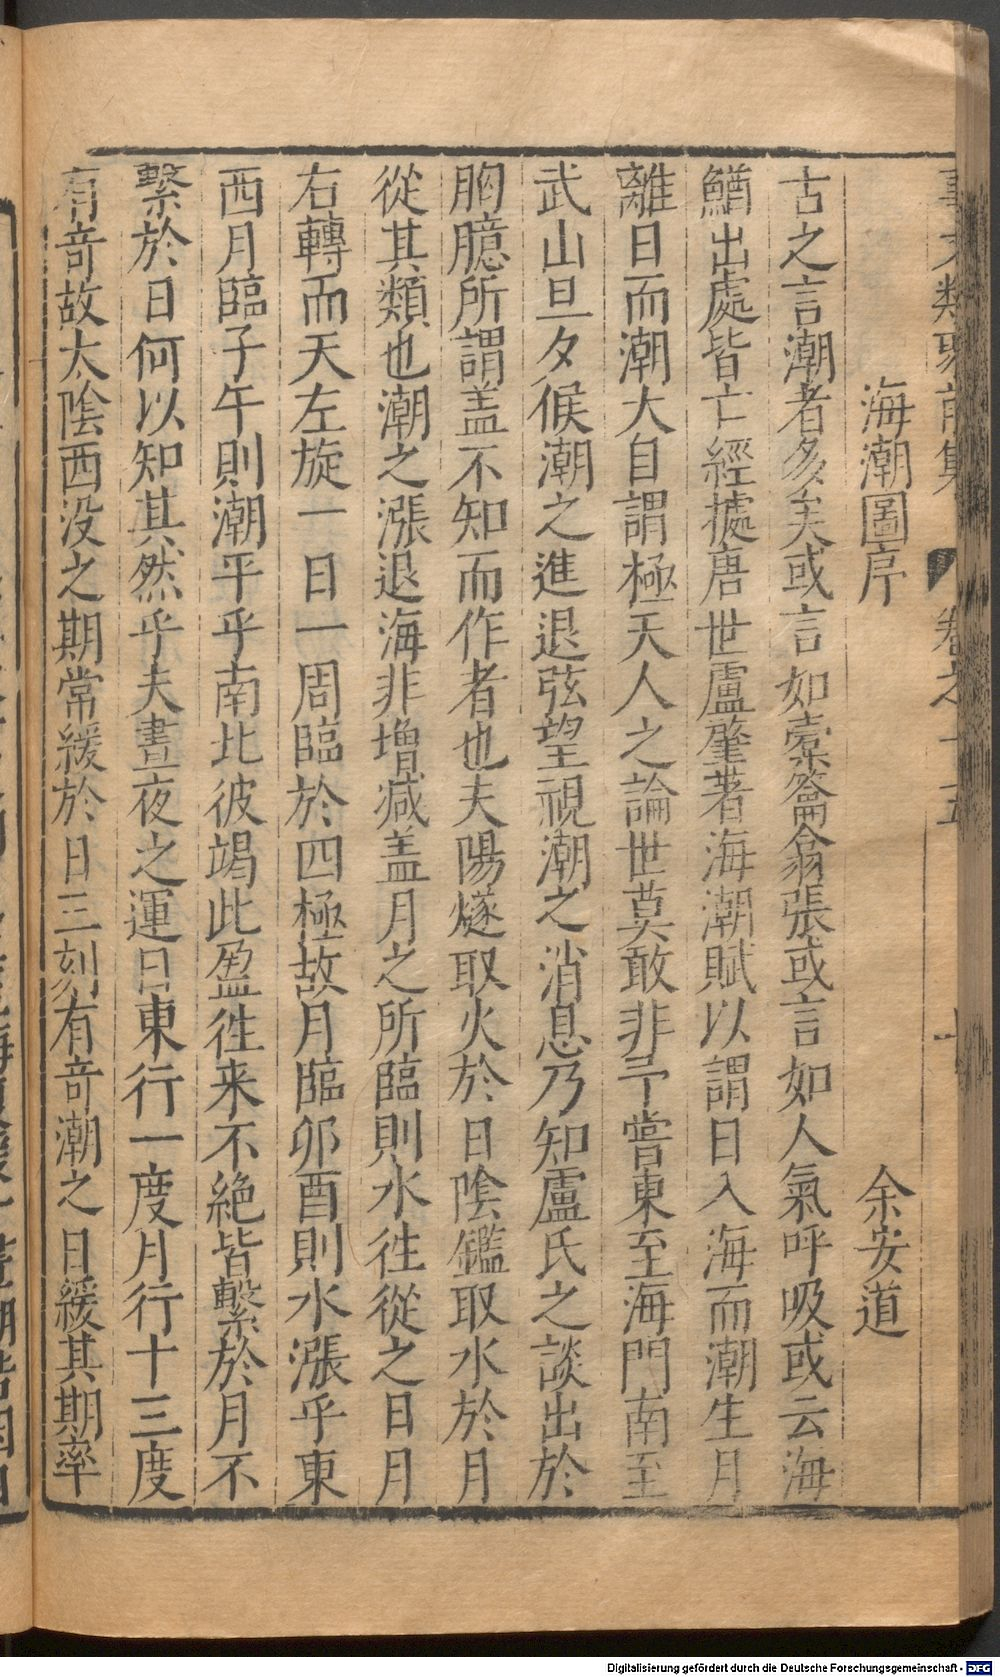 事文類聚前集 卷之十五
海潮圖序 余安道
古之言潮者多矣或言如橐籥翕張或言如人氣呼吸或云海
鰌出處皆亡經據唐世盧肇著海潮賦以謂日入海而潮生月
離日而潮大自謂極天人之論世莫敢非予嘗東至海門南至
武山旦夕候潮之進退弦望視潮之消息乃知盧氏之談出於
胸臆所謂盖不知而作者也夫陽燧取火於日陰鑑取水於月
從其類也潮之漲退海非增减盖月之所臨則水徃從之日月
右轉而天左旋一日一周臨於四極故月臨卯酉則水漲乎東
西月臨子午則潮平乎南北彼竭此盈徃来不絶皆繫於月不
繫於日何以知其然乎夫晝夜之運日東行一度月行十三度
有竒故太陰西没之期常緩於日三刻有竒潮之日緩其期率
Digitalisierung gefördert durch die Deutsche Forschungsgemeinschaft - DFG